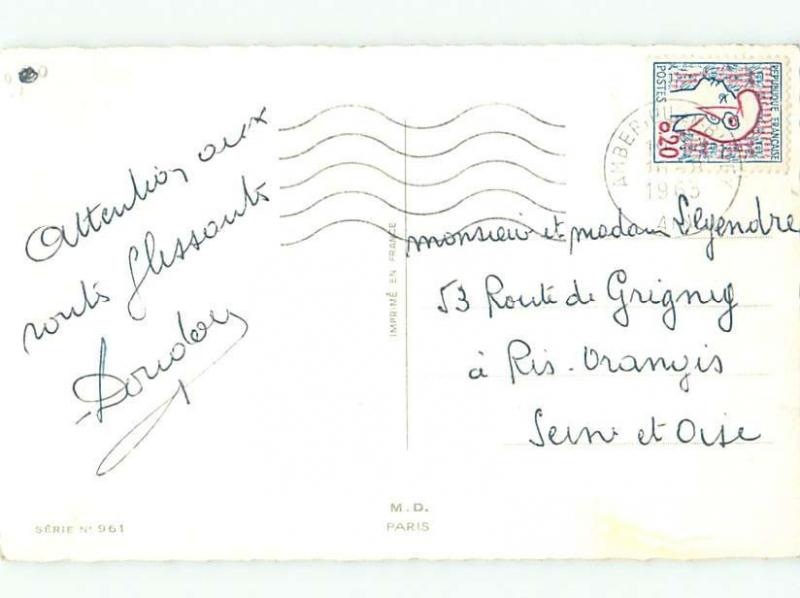 Attention aux
routes glissants
RÉPUBLIQUE FRANÇAISE
POSTES
0,20
AMBER
1963
IMPRIMÉ EN FRANCE
monsieur et madame Legendre
53 Route de Grigny
à Ris-Orangis
Seine et Oise
M.D.
PARIS
SÉRIE N° 961